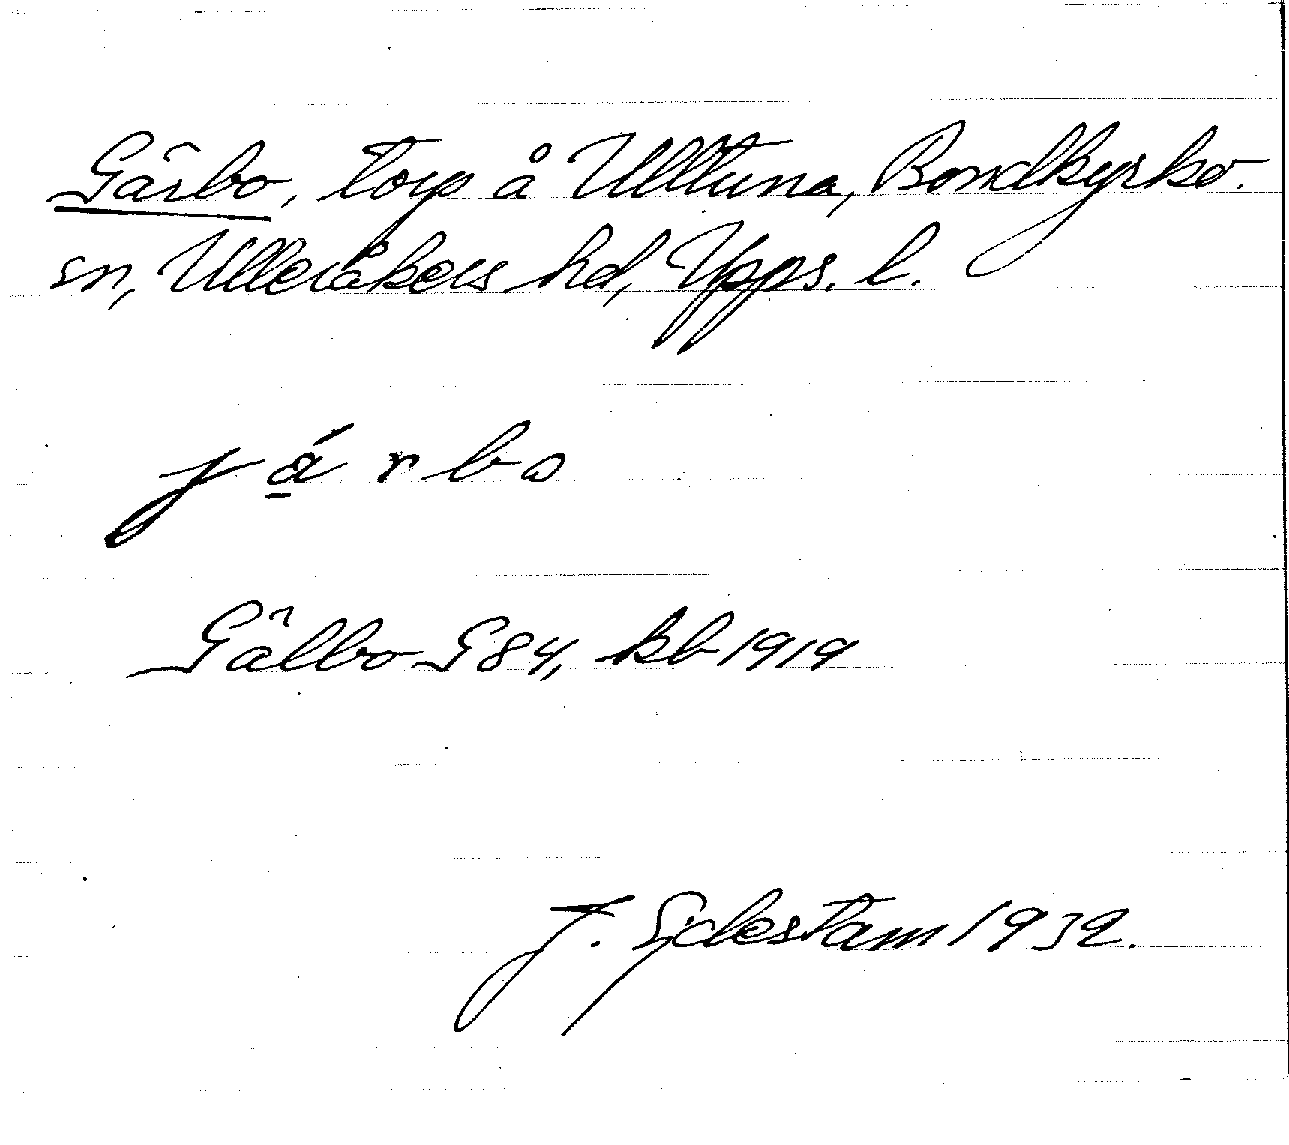 Gärbo, torp å Ulltuna, Bondkyrko.
sn, Ulleråkers hd, Upps. l.
já̱rbo
Gälbo G84, kb 1919
F. Gelestam 1932.